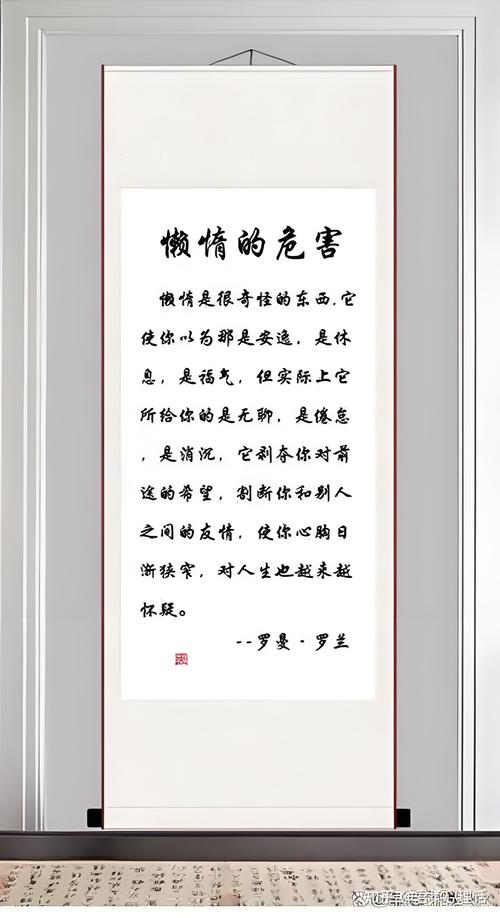 懒惰的危害
懒惰是很奇怪的东西,它
使你以为那是安逸,是休
息,是福气,但实际上它
所给你的是无聊,是倦怠
,是消沉,它剥夺你对前
途的希望,割断你和别人
之间的友情,使你心胸日
渐狭窄,对人生也越来越
怀疑。
--罗曼·罗兰